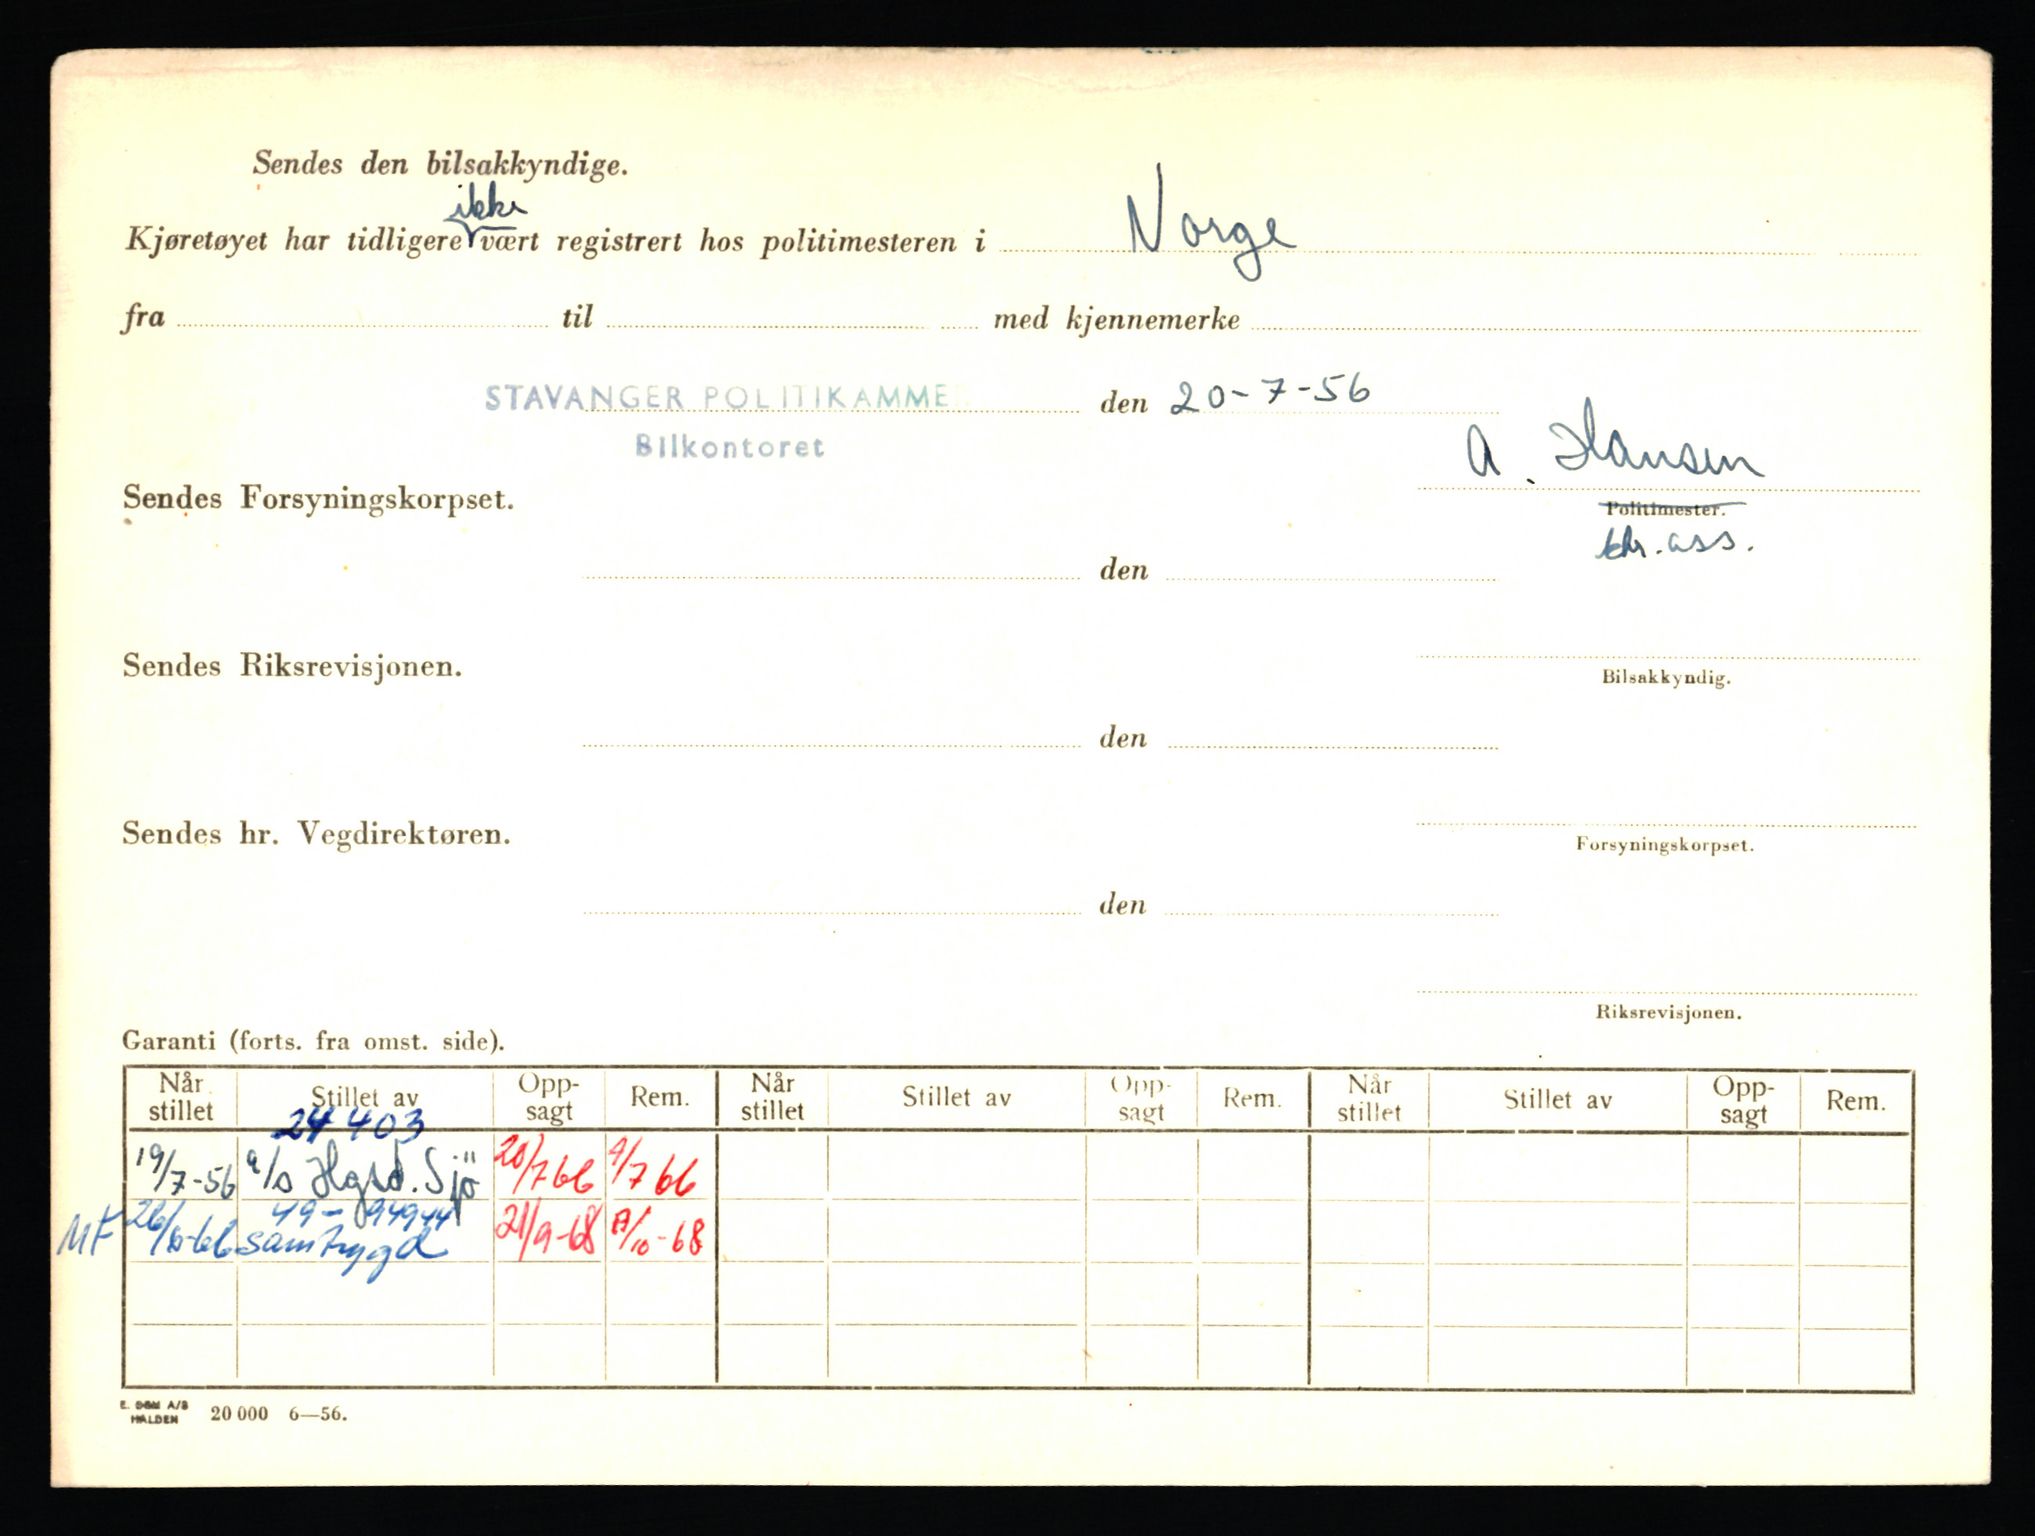 Sendes den bilsakkyndige.
ikke
Kjøretøyet har tidligere vært registrert hos politimesteren i Norge
fra til med kjennemerke
STAVANGER POLITIKAMME den 20-7-56
Bilkontoret
A. Hansen
Sendes Forsyningskorpset.
Politimester.
ktr. ass.
den
Sendes Riksrevisjonen.
Bilsakkyndig.
den
Sendes hr. Vegdirektøren.
Forsyningskorpset.
den
Riksrevisjonen.
Garanti (forts. fra omst. side).
Når stillet Stillet av Opp-sagt Rem. Når stillet Stillet av Opp-sagt Rem. Når stillet Stillet av Opp-sagt Rem.
24403
19/7-56 a/s Hgsd. Sjö 20/7 66 9/7 66
49-94944
MF 26/10-66 samtrygd 21/9-68 /10-68
E. DGM A/S
HALDEN 20 000 6—56.